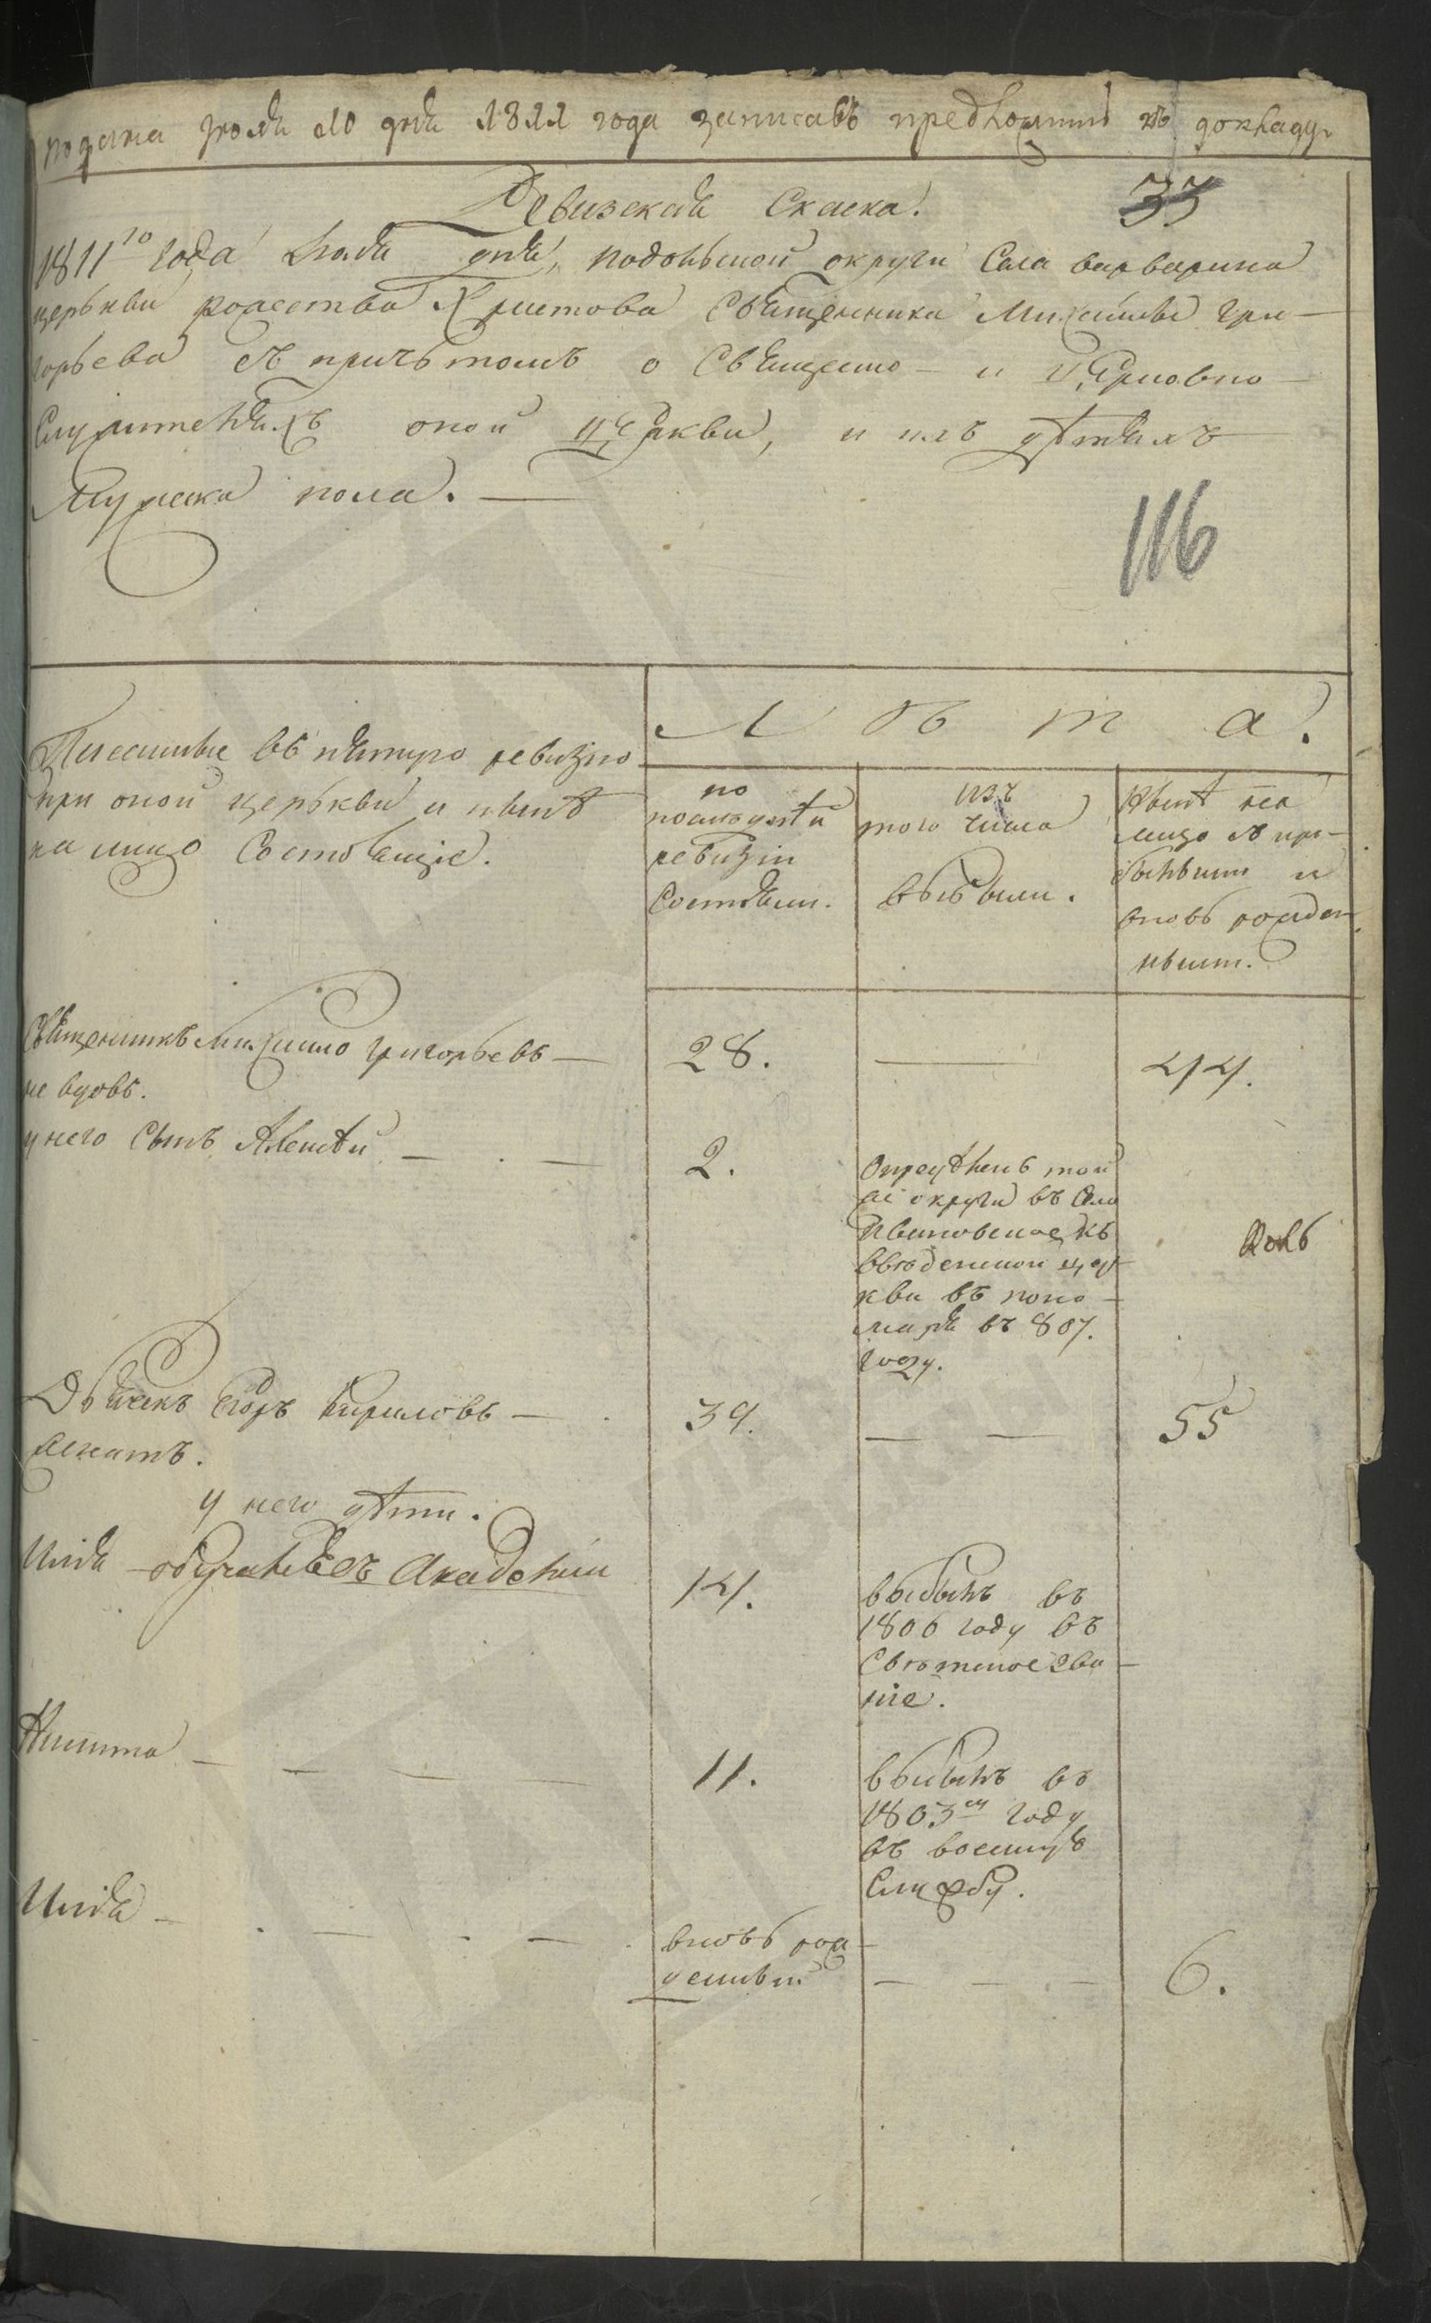 подана июля 10 дня 1811 года записавъ предложить къ докладу
Ревизская Скаска.
33
1811го года Июля дня, подольской округи Села варварина
церькви рожества Христова Священника Михайлы Гри-
горьева съ причьтомъ о Священно- и Церковно-
Служителяхъ оной церкви, и ихъ дѣтяхъ
Мужеска пола.
116
Писанные въ пятую ревизию
при оной церькви и нынѣ
на лицо Состоящіе.
Л ѣ т а.
по
последнѣй
ревизіи
Состояли.
изъ
того числа
выбыли.
Нынѣ на
лицо съ при-
былыми и
вновь рожден-
ными.
Священникъ Михайло Григорьевъ
не вдовъ.
28.
44.
у него Сынъ Алексѣй
2.
Опредѣленъ той
же округи въ Село
Ивановское къ
введенской цер-
кви въ поно-
маря въ 807.
году.
Дьячекъ Егоръ Кириловъ
женатъ.
39.
55
у него дѣти.
Илья обучался въ Академіи
14.
выбылъ въ
1806 году въ
Свѣтское зва-
ніе.
Никита
11.
выбылъ въ
1803м году
въ военную
Службу.
Илья
вновь рож-
денный
6.